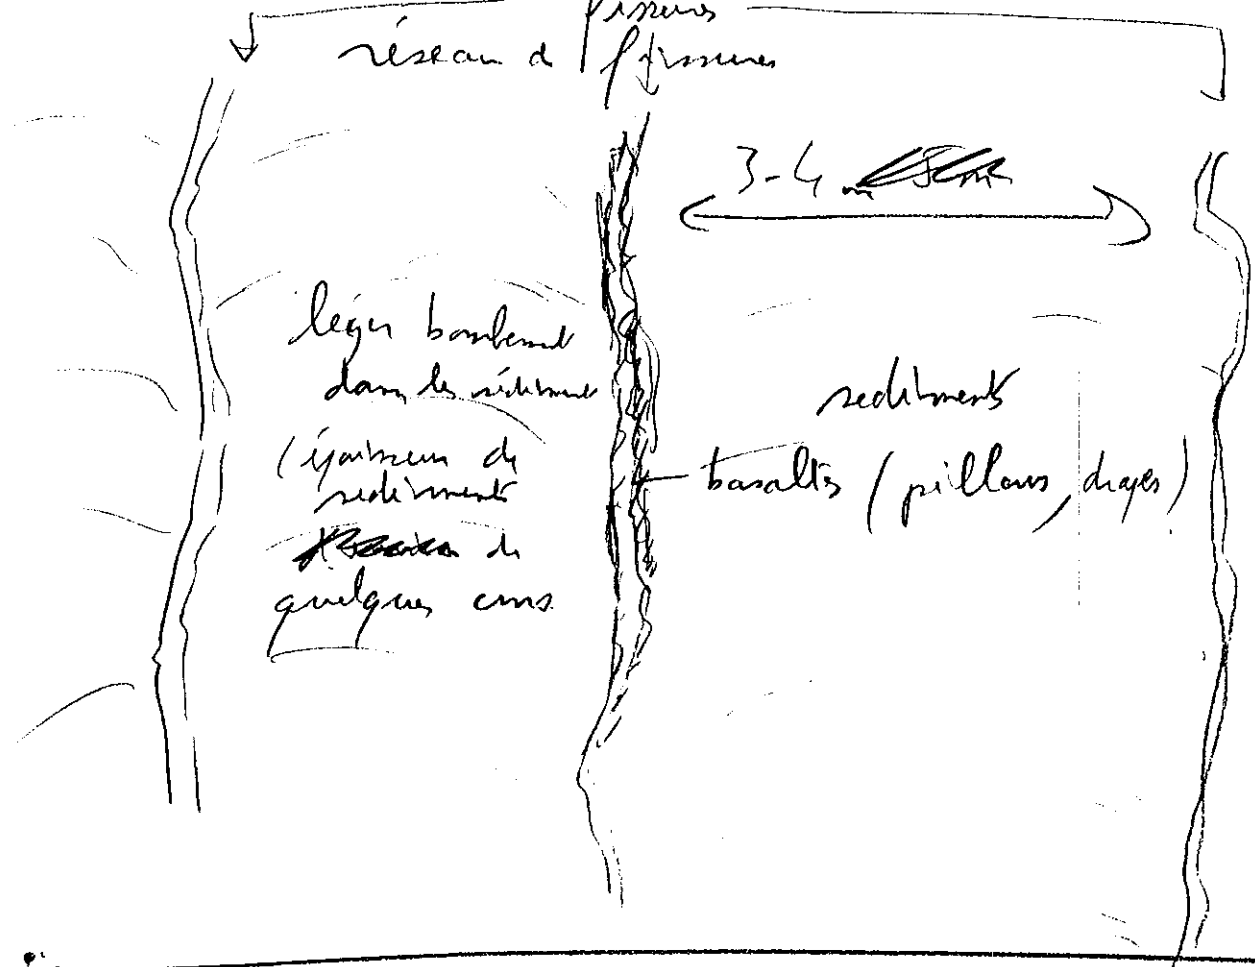 fissures
réseau de fissures
3-4 m
léger bombement
dans les sédiments
(épaisseur de
sediments
de
quelques cms
sediments
basaltes (pillows, drapés)